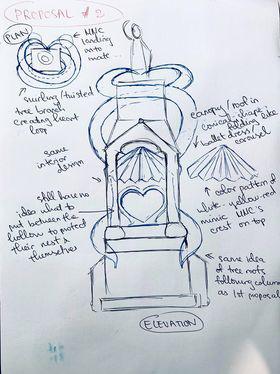 PROPOSAL #2
PLAN
MNC
landing
onto
mate ...
swirling/twisted
tree branch
creating heart
loop
canopy/roof in
conical shape
folding like
ballet dress/
carousel
same
interior
design
color pattern of
white - yellow - red
mimic MNC's
crest on top
still have no
idea what to
put between the
hollow to
their nest &
themselves
same idea
of tree roots
following column
as 1st proposal
ELEVATION